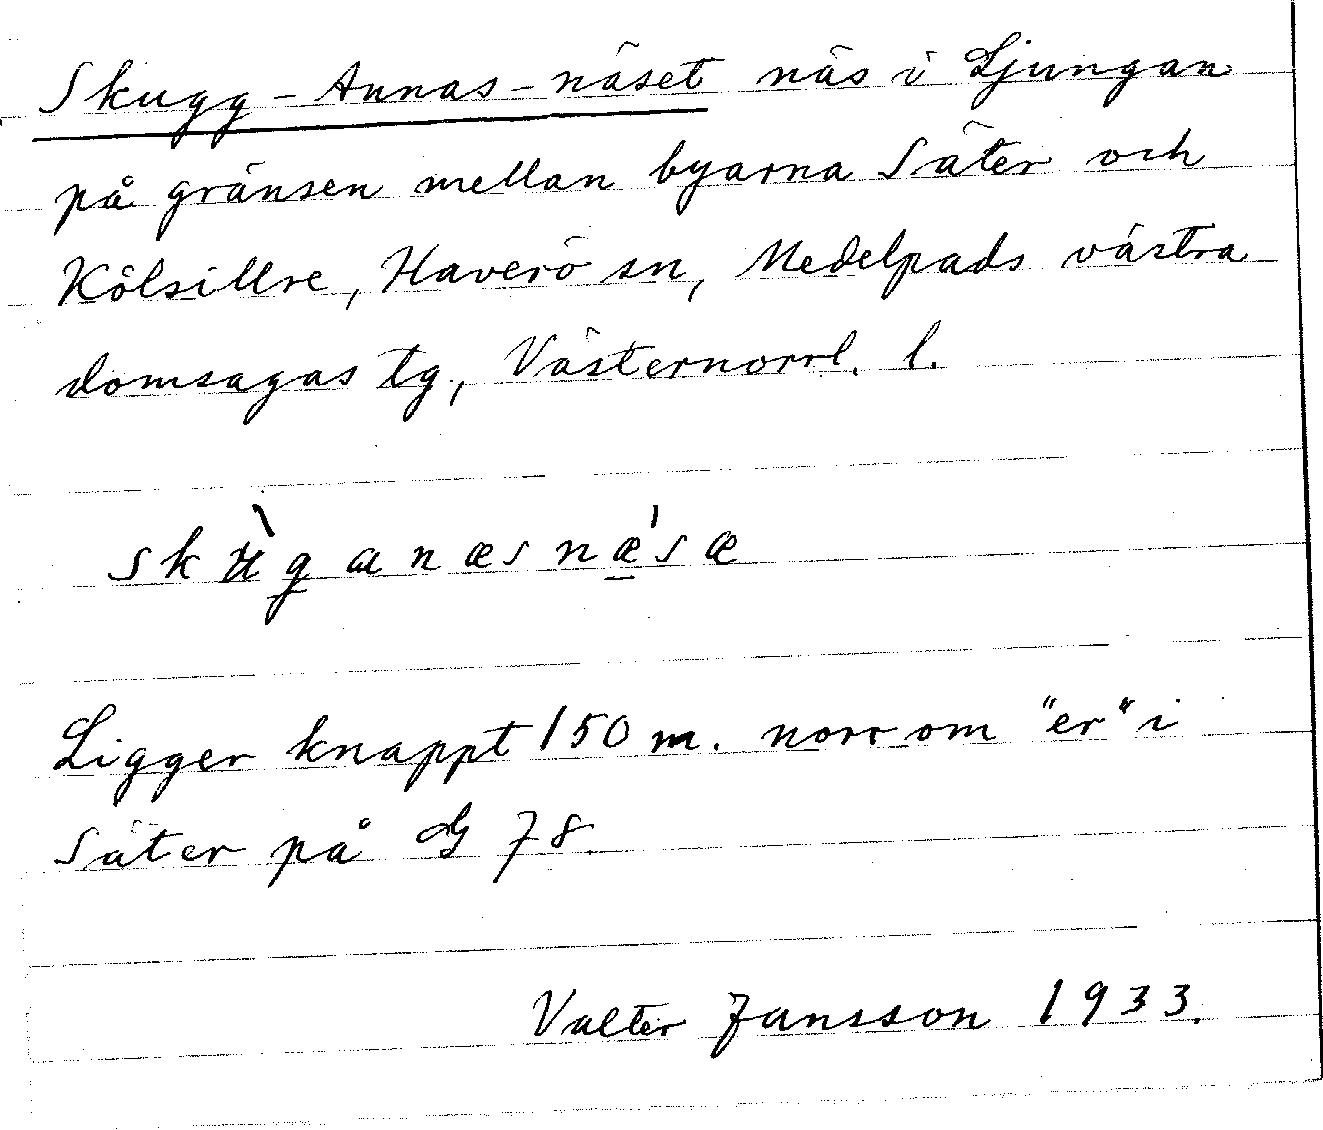 Skugg-Annas-näset näs i Ljungan
på gränsen mellan byarna Säter och
Kölsillre, Haverö sn, Medelpads västra
domsagas tg, Västernorrl. l.
skʉ̀ganæsnæ̲´sæ
Ligger knappt 150 m. norr om "er" i
Säter på G 78.
Valter Jansson 1933.